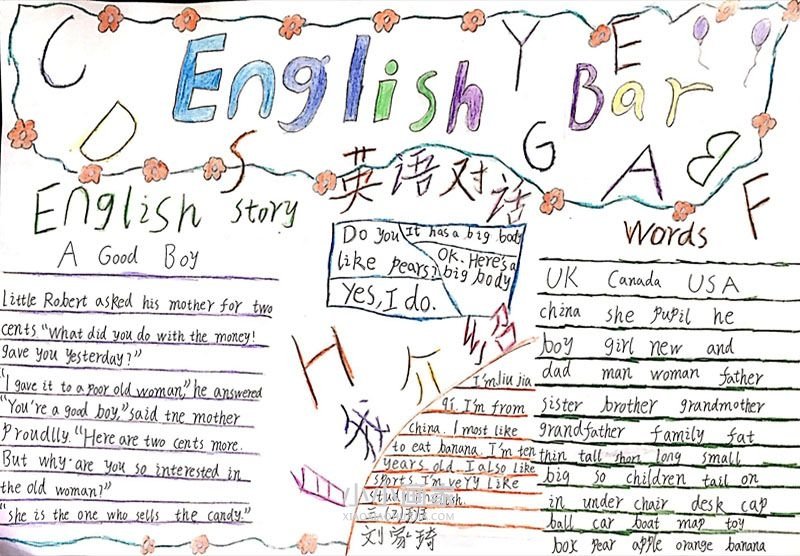 English Bar
C
D
S
Y
E
G
A
B
F
H
English story
A Good Boy
Little Robert asked his mother for two
cents "What did you do with the money!
gave you yesterday?"
"I gave it to a poor old woman," he answered
"You're a good boy," said the mother
Proudlly. "Here are two cents more.
But why are you so interested in
the old woman?"
"she is the one who sells the candy."
英语对话
Do you
like pears?
Yes, I do.
It has a big body
OK. Here's a
big body
自我介绍
I'm liu jia
qi. I'm from
china. I most like
to eat banana. I'm ten
years old. I also like
sports. I'm very like
班
刘家琦
Words
UK Canada USA
china she pupil he
boy girl new and
dad man woman father
sister brother grandmother
grandfather family fat
thin tall short long small
big so children tail on
in under chair desk cap
ball car boat map toy
book pear apple orange banana